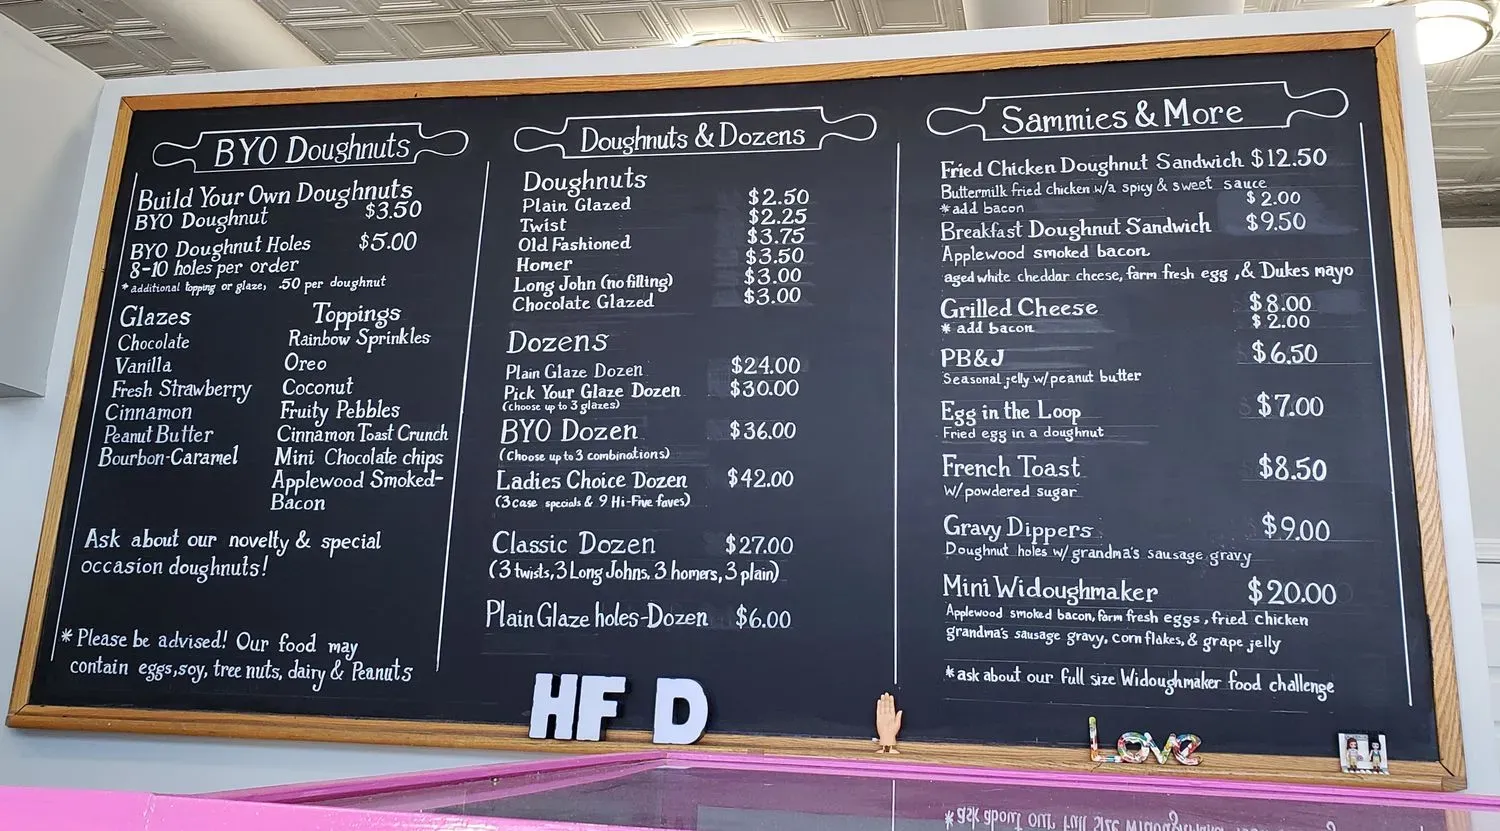 BYO Doughnuts
Build Your Own Doughnuts
BYO Doughnut $3.50
BYO Doughnut Holes $5.00
8-10 holes per order
* additional topping or glaze, .50 per doughnut
Glazes Toppings
Chocolate Rainbow Sprinkles
Vanilla Oreo
Fresh Strawberry Coconut
Cinnamon Fruity Pebbles
Peanut Butter Cinnamon Toast Crunch
Bourbon-Caramel Mini Chocolate chips
Applewood Smoked-
Bacon
Ask about our novelty & special
occasion doughnuts!
* Please be advised! Our food may
contain eggs, soy, tree nuts, dairy & Peanuts
Doughnuts & Dozens
Doughnuts
Plain Glazed $2.50
Twist $2.25
Old Fashioned $3.75
Homer $3.50
Long John (no filling) $3.00
Chocolate Glazed $3.00
Dozens
Plain Glaze Dozen $24.00
Pick Your Glaze Dozen $30.00
(choose up to 3 glazes)
BYO Dozen $36.00
(Choose up to 3 combinations)
Ladies Choice Dozen $42.00
(3 case specials & 9 Hi-Five faves)
Classic Dozen $27.00
(3 twists, 3 Long Johns, 3 homers, 3 plain)
Plain Glaze holes-Dozen $6.00
HF D
Sammies & More
Fried Chicken Doughnut Sandwich $12.50
Buttermilk fried chicken w/a spicy & sweet sauce
* add bacon $2.00
Breakfast Doughnut Sandwich $9.50
Applewood smoked bacon
aged white cheddar cheese, farm fresh egg, & Dukes mayo
Grilled Cheese $8.00
* add bacon $2.00
PB&J $6.50
Seasonal jelly w/peanut butter
Egg in the Loop $7.00
Fried egg in a doughnut
French Toast $8.50
w/powdered sugar
Gravy Dippers $9.00
Doughnut holes w/grandma's sausage gravy
Mini Widoughmaker $20.00
Applewood smoked bacon, farm fresh eggs, fried chicken
grandma's sausage gravy, corn flakes, & grape jelly
*ask about our full size Widoughmaker food challenge
Love